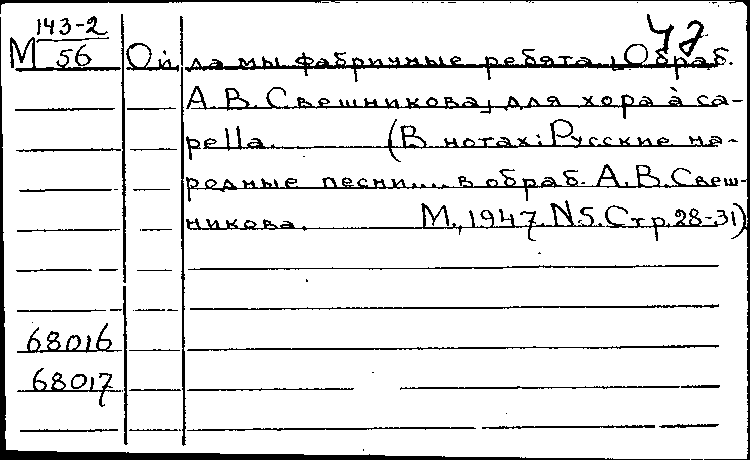 47
М 143-2
56
Ой, да мы фабричные ребята, Обраб.
А. В. Свешникова, для хора à ca-
pella. (В нотах: Русские на-
родные песни.... в обраб. А. В. Свеш-
никова. М., 1947. N5. Стр. 28-31)
68016
68017